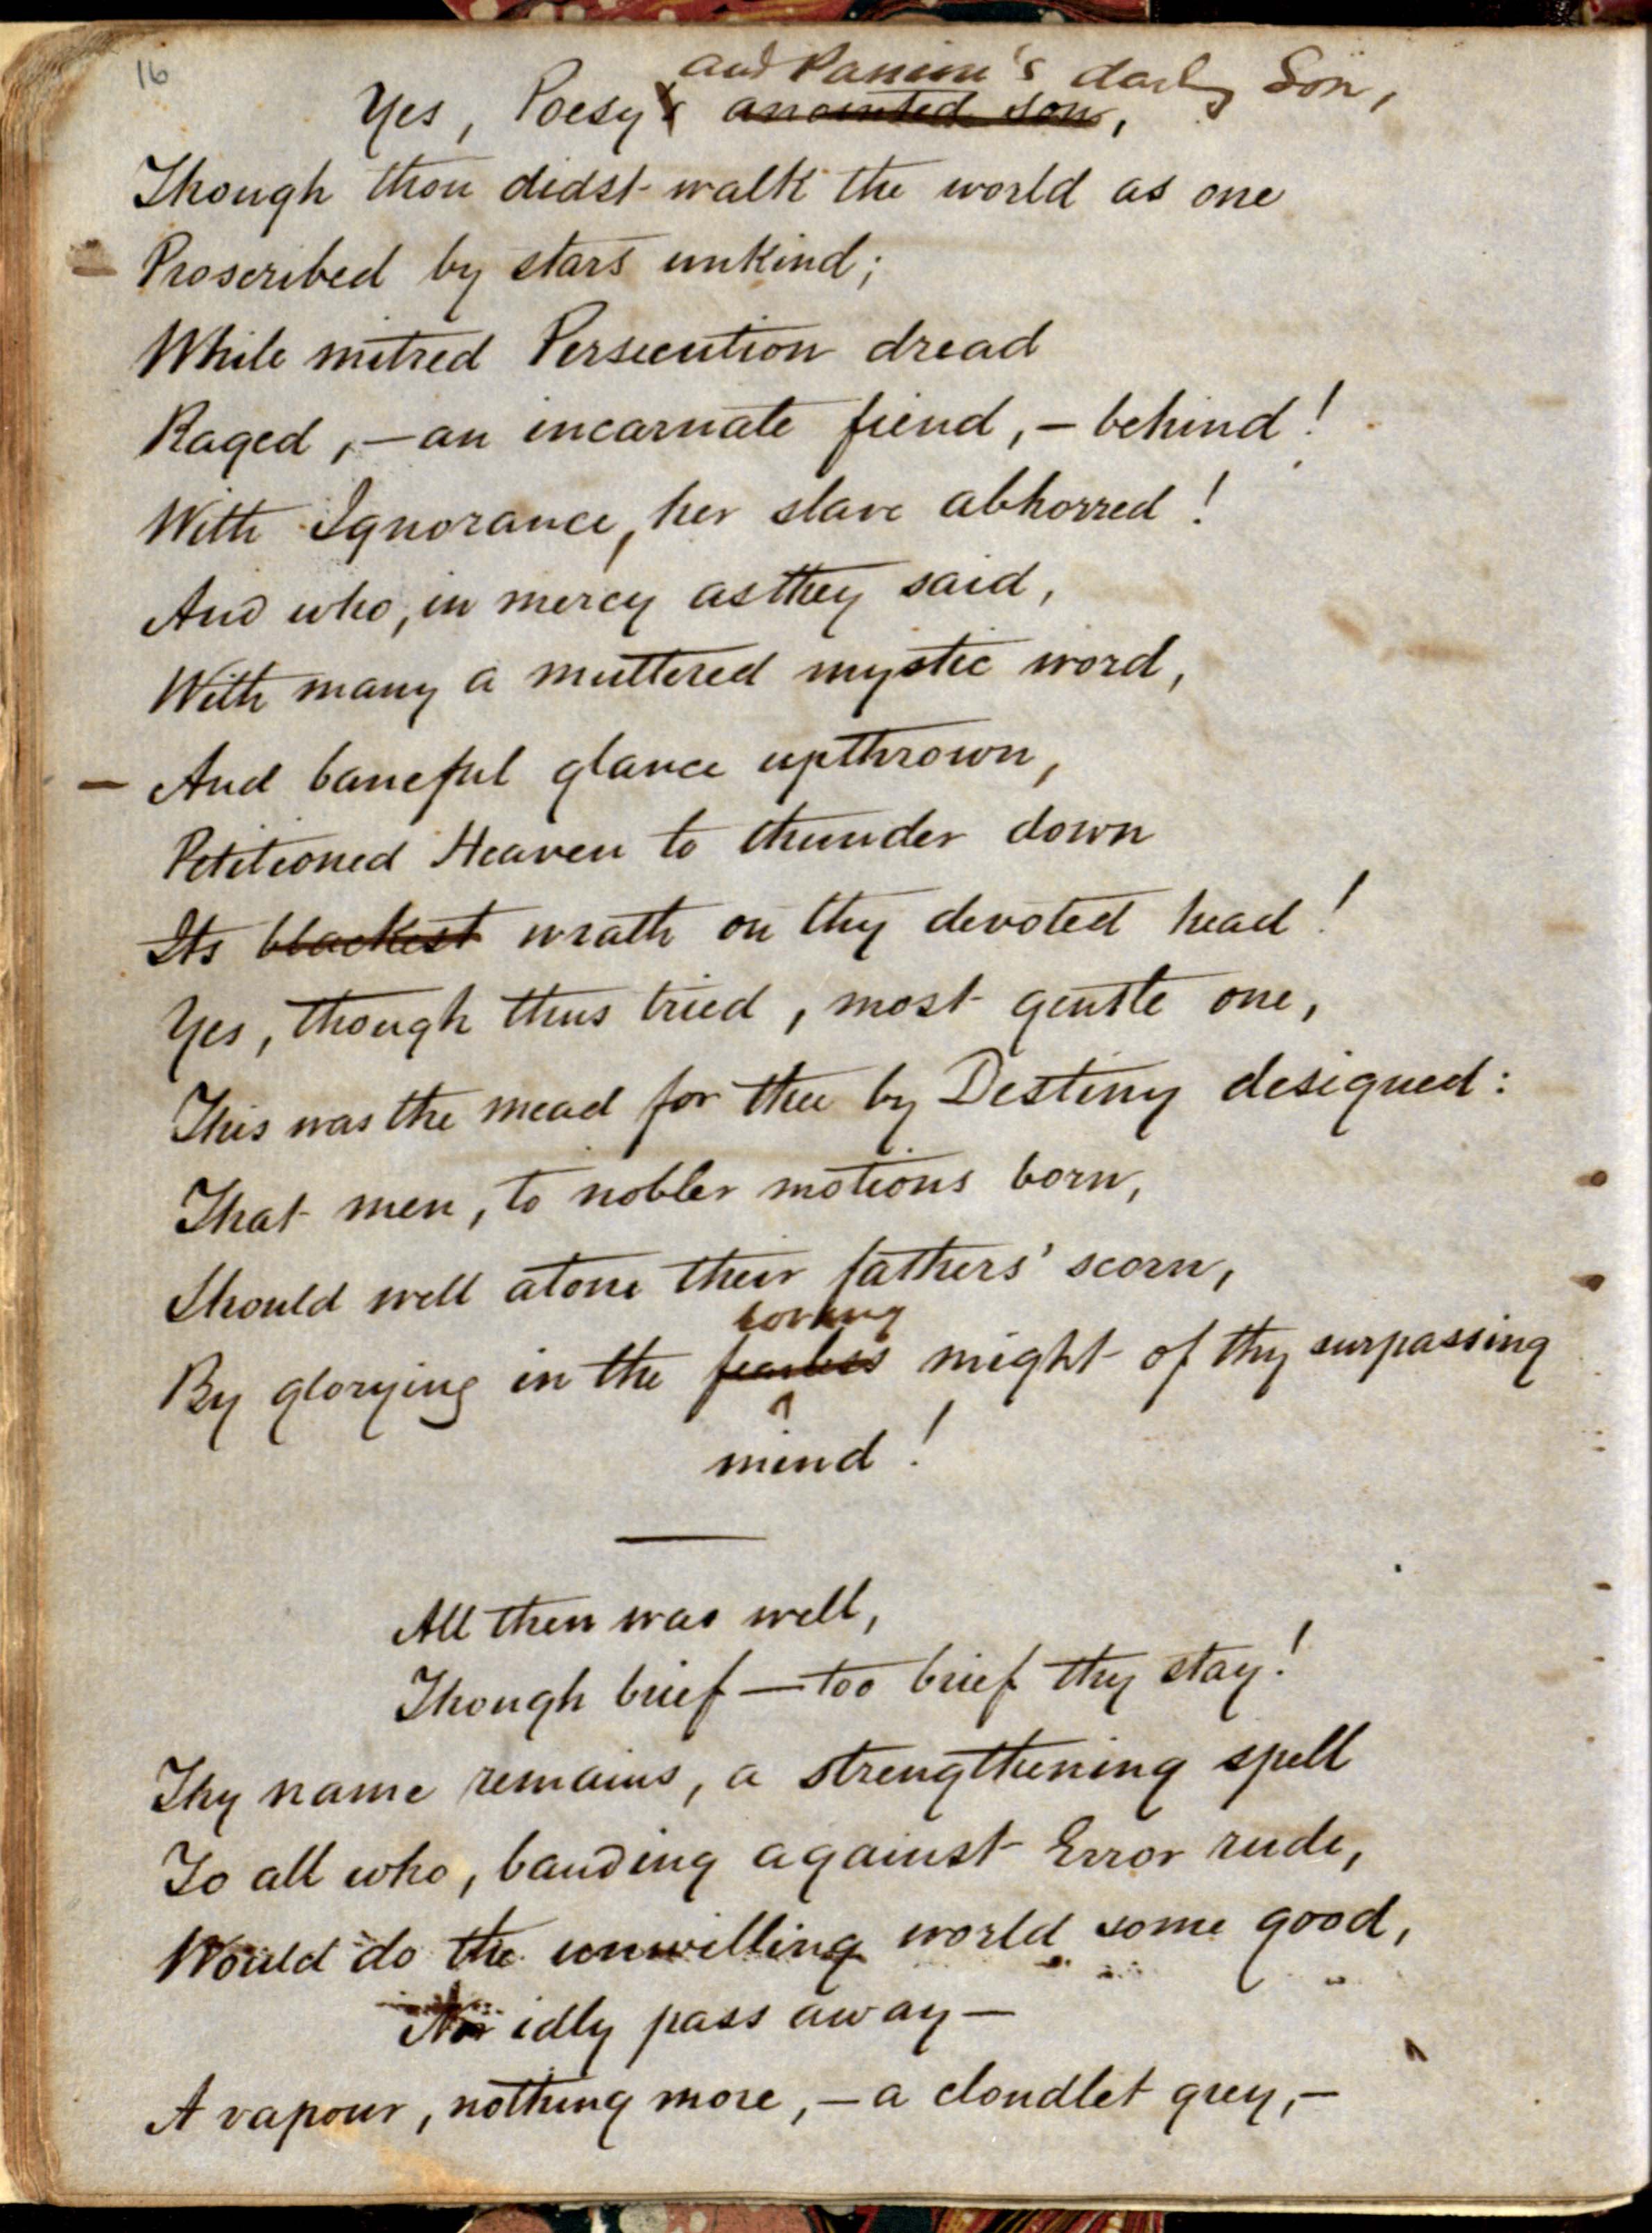 16
and Passion's darling Son,
Yes, Poesy's anointed son,
Though thou didst walk the world as one
Proscribed by stars unkind;
While mitred Persecution dread
Raged, — an incarnate fiend, — behind!
With Ignorance, her slave abhorred!
And who, in mercy as they said,
With many a muttered mystic word,
— And baneful glance upthrown,
Petitioned Heaven to thunder down
Its blackest wrath on thy devoted head!
Yes, though thus tried, most gentle one,
This was the mead for thee by Destiny designed:
That men, to nobler motions born,
Should well atone their fathers' scorn,
loving
By glorying in the fearless might of thy surpassing
mind!
All then was well,
Though brief — too brief thy stay!
Thy name remains, a strengthening spell
To all who, banding against Error rude,
Would do the unwilling world some good,
Nor idly pass away —
A vapour, nothing more, — a cloudlet grey, —